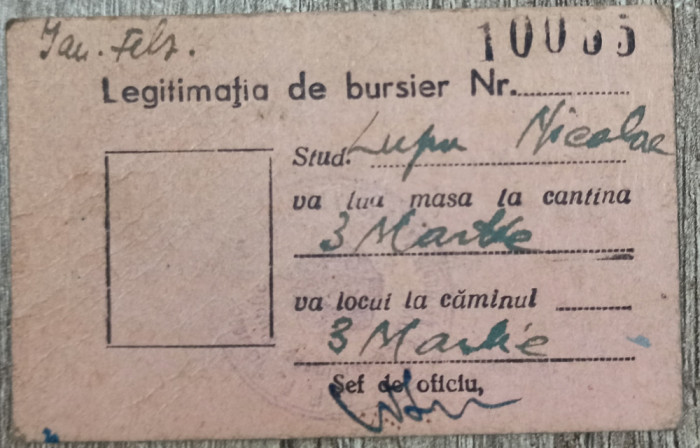 Ian. Febr.
Legitimația de bursier Nr. 10035
Stud. Lupu Nicolae
va lua masa la cantina
3 Martie
va locui la căminul
3 Martie
Șef de oficiu,